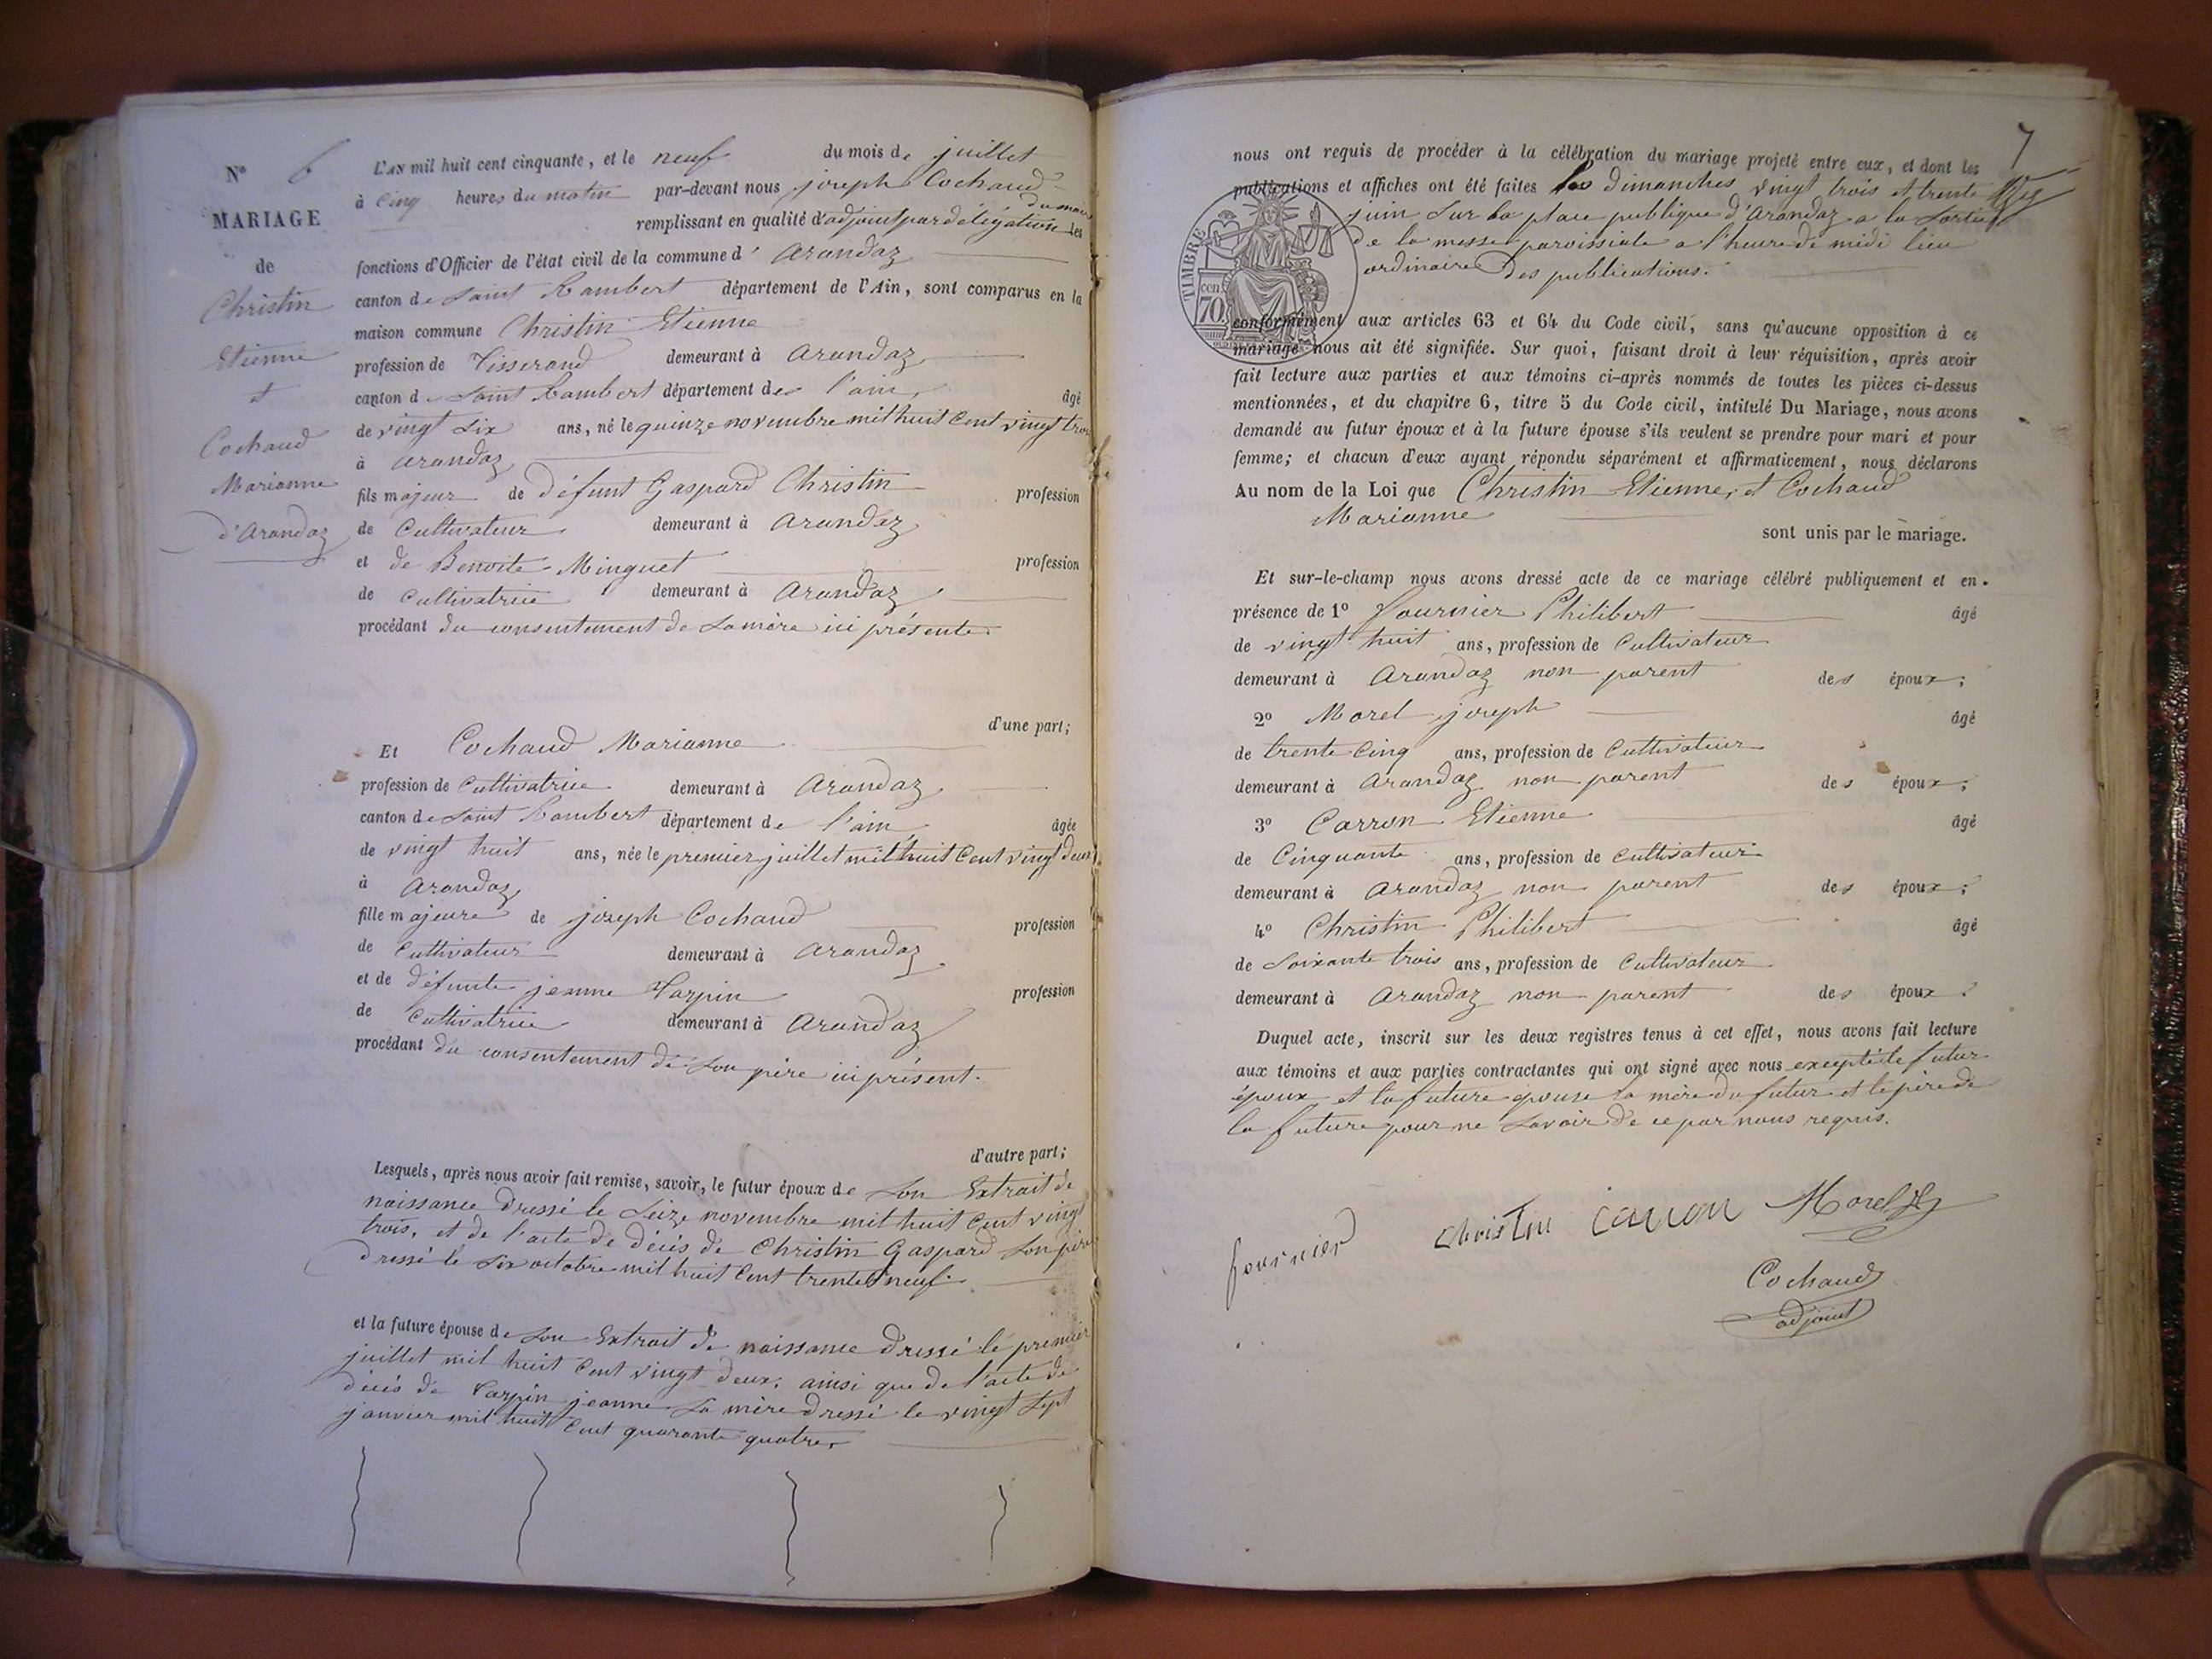 N° 6
MARIAGE
de
Christin
Etienne
et
Cochaud
Marianne
d'Arandaz
L'AN mil huit cent cinquante, et le neuf du mois de juillet
à cinq heures du matin par-devant nous joseph Cochaud
remplissant en qualité d'adjoint par délégation du maire les
fonctions d'Officier de l'état civil de la commune d' Arandaz
canton de Saint Rambert département de l'Ain, sont comparus en la
maison commune Christin Etienne
profession de Tisserand demeurant à Arandaz
canton de Saint Rambert département de l'ain, âgé
de vingt six ans, né le quinze novembre mil huit cent vingt trois
à Arandaz
fils majeur de défunt Gaspard Christin profession
de Cultivateur demeurant à Arandaz
et de Benoite Minguet profession
de Cultivatrice demeurant à Arandaz
procédant du consentement de sa mère ici présente
d'une part;
Et Cochaud Marianne
profession de Cultivatrice demeurant à Arandaz
canton de Saint Rambert département de l'ain âgée
de vingt huit ans, née le premier juillet mil huit cent vingt deux
à Arandaz
fille majeure de joseph Cochaud profession
de Cultivateur demeurant à Arandaz
et de défunte jeanne Tarpin profession
de Cultivatrice demeurant à Arandaz
procédant du consentement de son père ici présent.
d'autre part;
Lesquels, après nous avoir fait remise, savoir, le futur époux de son Extrait de
naissance dressé le seize novembre mil huit cent vingt
trois, et de l'acte de décès de Christin Gaspard son père
dressé le six octobre mil huit cent trente neuf.
et la future épouse de son Extrait de naissance dressé le premier
juillet mil huit cent vingt deux, ainsi que de l'acte de
décès de Tarpin jeanne sa mère dressé le vingt sept
janvier mil huit cent quarante quatre
7
nous ont requis de procéder à la célébration du mariage projeté entre eux, et dont les
publications et affiches ont été faites les dimanches vingt trois et trente
juin sur la place publique d'Arandaz a la sortie
de la messe paroissiale a l'heure de midi lieu
ordinaire des publications.
TIMBRE
70 cen
conformément aux articles 63 et 64 du Code civil, sans qu'aucune opposition à ce
mariage nous ait été signifiée. Sur quoi, faisant droit à leur réquisition, après avoir
fait lecture aux parties et aux témoins ci-après nommés de toutes les pièces ci-dessus
mentionnées, et du chapitre 6, titre 5 du Code civil, intitulé Du Mariage, nous avons
demandé au futur époux et à la future épouse s'ils veulent se prendre pour mari et pour
femme; et chacun d'eux ayant répondu séparément et affirmativement, nous déclarons
Au nom de la Loi que Christin Etienne, et Cochaud
Marianne
sont unis par le mariage.
Et sur-le-champ nous avons dressé acte de ce mariage célébré publiquement et en
présence de 1° Fournier Philibert âgé
de vingt huit ans, profession de Cultivateur
demeurant à Arandaz non parent des époux;
2° Morel joseph âgé
de trente cinq ans, profession de Cultivateur
demeurant à Arandaz non parent des époux;
3° Carron Etienne âgé
de Cinquante ans, profession de cultivateur
demeurant à Arandaz non parent des époux;
4° Christin Philibert âgé
de soixante trois ans, profession de Cultivateur
demeurant à Arandaz non parent des époux.
Duquel acte, inscrit sur les deux registres tenus à cet effet, nous avons fait lecture
aux témoins et aux parties contractantes qui ont signé avec nous excepté le futur
époux et la future épouse la mère du futur et le père de
la future pour ne savoir de ce par nous requis.
fournier Christin Carron Morel
Cochaud
adjoint